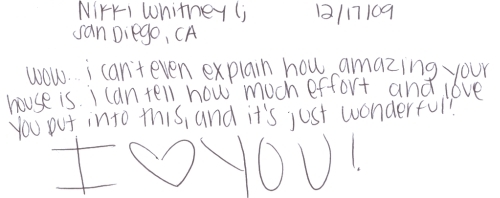 Nikki Whitney (; 12/17/09
San Diego, CA
wow... i can't even explain how amazing your
house is. i can tell how much effort and love
you put into this, and it's just wonderful!
I ♡ YOU!